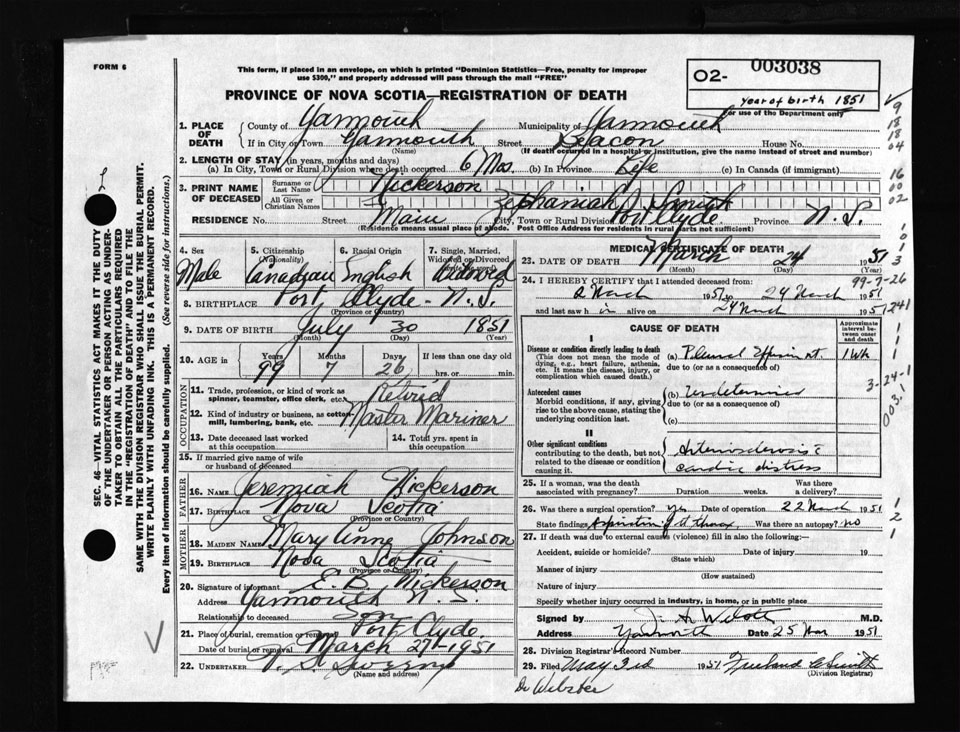 FORM 6
This form, if placed in an envelope, on which is printed "Dominion Statistics—Free, penalty for improper
use $300," and properly addressed will pass through the mail "FREE"
PROVINCE OF NOVA SCOTIA—REGISTRATION OF DEATH
O2- 003038
year of birth 1851
For use of the Department only
1. PLACE OF DEATH
County of Yarmouth Municipality of Yarmouth
If in City or Town Yarmouth Street Deacon House No.
(Name) (If death occurred in a hospital or institution, give the name instead of street and number)
2. LENGTH OF STAY (in years, months and days)
(a) In City, Town or Rural Division where death occurred 6 Mos. (b) In Province Life (c) In Canada (if immigrant)
3. PRINT NAME OF DECEASED
Surname or Last Name Nickerson
All Given or Christian Names Zephaniah J. Smith
RESIDENCE No. Street Main City, Town or Rural Division Port Clyde Province N. S.
(Residence means usual place of abode. Post Office Address for residents in rural parts not sufficient)
4. Sex Male
5. Citizenship (Nationality) Canadian
6. Racial Origin English
7. Single, Married, Widowed or Divorced Widowed
8. BIRTHPLACE Port Clyde - N. S.
(Province or Country)
9. DATE OF BIRTH July 30 1851
(Month) (Day) (Year)
10. AGE in Years 99 Months 7 Days 26 If less than one day old
hrs. or min.
OCCUPATION
11. Trade, profession, or kind of work as spinner, teamster, office clerk, etc. Retired
12. Kind of industry or business, as cotton-mill, lumbering, bank, etc. Master Mariner
13. Date deceased last worked at this occupation
14. Total yrs. spent in this occupation
15. If married give name of wife or husband of deceased
FATHER
16. NAME Jeremiah Nickerson
17. BIRTHPLACE Nova Scotia
(Province or Country)
MOTHER
18. MAIDEN NAME Mary Anne Johnson
19. BIRTHPLACE Nova Scotia
(Province or Country)
20. Signature of informant E. B. Nickerson
Address Yarmouth N. S.
Relationship to deceased Son
21. Place of burial, cremation or removal Port Clyde
Date of burial or removal March 27-1951
22. UNDERTAKER
(Name and address)
MEDICAL CERTIFICATE OF DEATH
23. DATE OF DEATH March 24 1951
(Month) (Day) (Year)
99-7-26
24. I HEREBY CERTIFY that I attended deceased from:
2 March 1951 to 24 March 1951
and last saw h im alive on 24 March 1951
CAUSE OF DEATH
Approximate interval between onset and death
I
Disease or condition directly leading to death
(This does not mean the mode of dying, e.g., heart failure, asthenia, etc. It means the disease, injury, or complication which caused death.)
(a) Pleural Effusion rt. 1 Wk
due to (or as a consequence of)
Antecedent causes
Morbid conditions, if any, giving rise to the above cause, stating the underlying condition last.
(b) Undetermined
due to (or as a consequence of)
(c)
3-24-1
II
Other significant conditions contributing to the death, but not related to the disease or condition causing it.
Arteriosclerosis c
cardiac distress
25. If a woman, was the death associated with pregnancy? Duration weeks. Was there a delivery?
26. Was there surgical operation? yes Date of operation 22 March 1951
State findings Aspiration of rt thorax Was there an autopsy? no
27. If death was due to external causes (violence) fill in also the following:
Accident, suicide or homicide? Date of injury 19
(State which)
Manner of injury
(How sustained)
Nature of injury
Specify whether injury occurred in industry, in home, or in public place
Signed by M.D.
Address Yarmouth Date 25 Mar 1951
28. Division Registrar's Record Number
29. Filed May 3rd 1951
(Division Registrar)
Dr Webster
SEC. 46—VITAL STATISTICS ACT MAKES IT THE DUTY
OF THE UNDERTAKER OR PERSON ACTING AS UNDER-
TAKER TO OBTAIN ALL THE PARTICULARS REQUIRED
IN THE "REGISTRATION OF DEATH" AND TO FILE THE
SAME WITH THE DIVISION REGISTRAR WHO SHALL ISSUE THE BURIAL PERMIT.
WRITE PLAINLY WITH UNFADING INK. THIS IS A PERMANENT RECORD.
Every item of information should be carefully supplied. (See reverse side for instructions.)